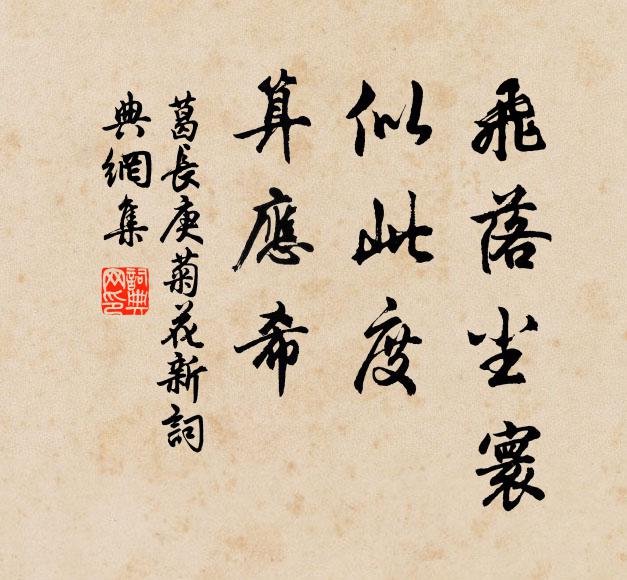 飛落塵寰
似此度
算應希
葛長庚菊花新詞
典網集
詞典網印